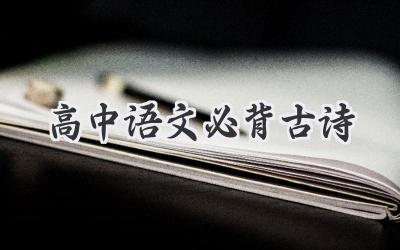 高中语文必背古诗